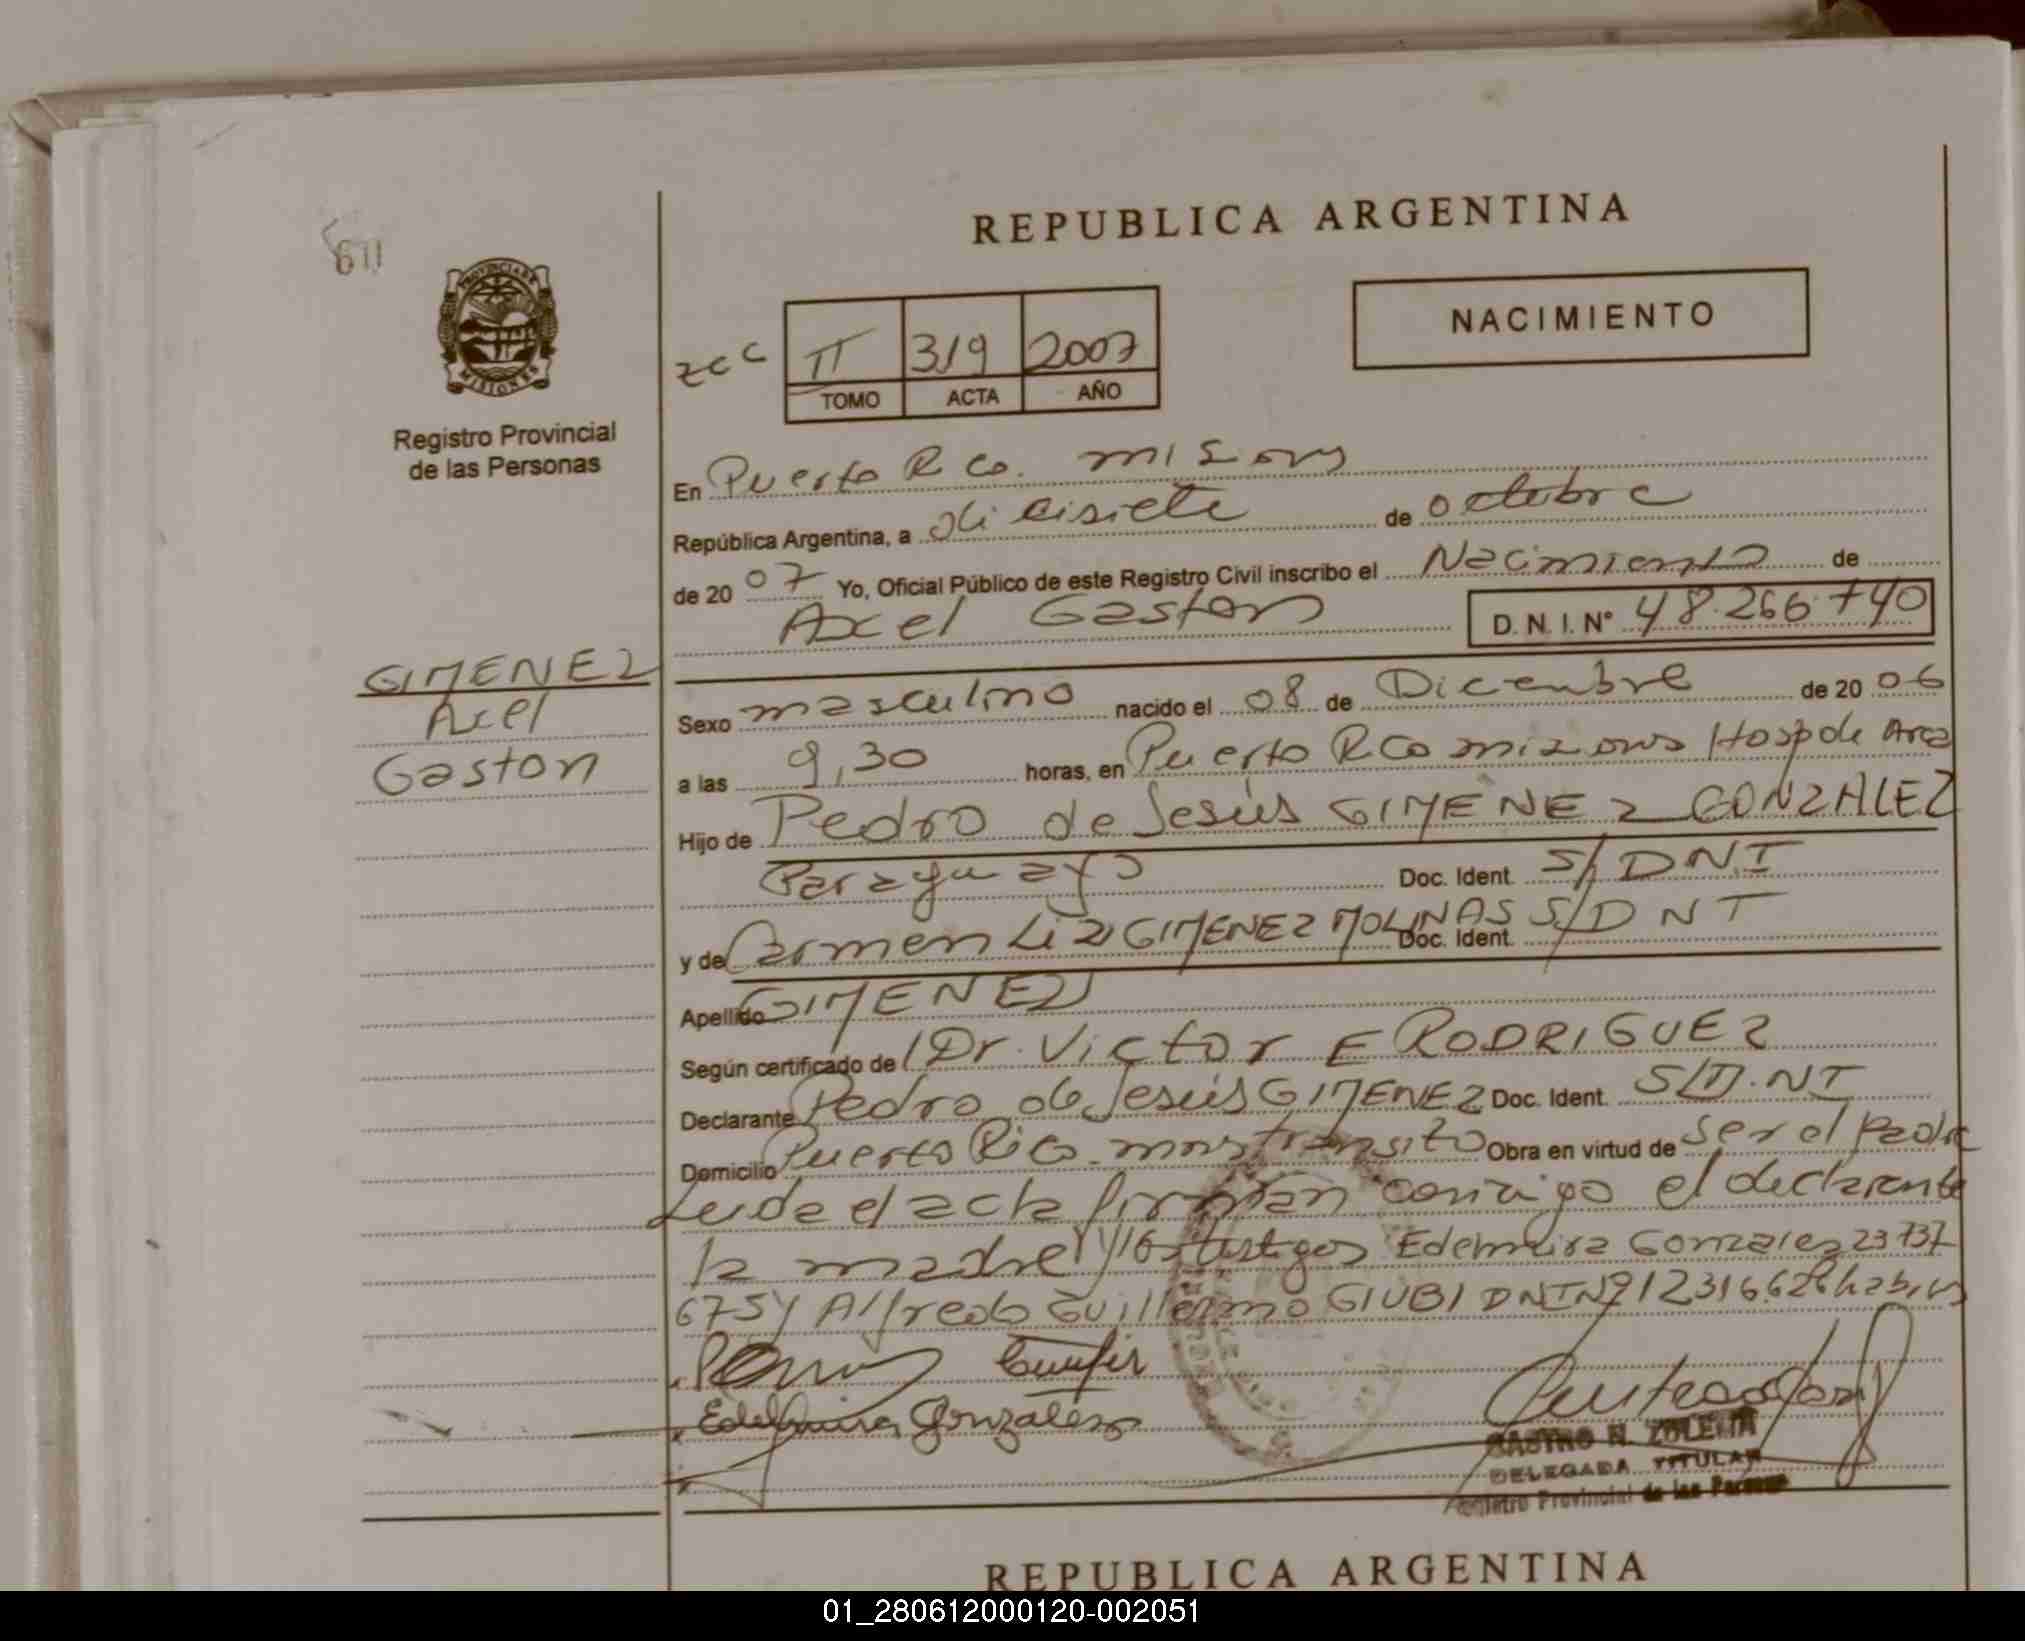 REPUBLICA ARGENTINA
611
PROVINCIA DE
MISIONES
Registro Provincial
de las Personas
zcc II 319 2007
TOMO ACTA AÑO
NACIMIENTO
En Puerto Rco. misons
República Argentina, a dicisiete de octubre
de 20 07 Yo, Oficial Público de este Registro Civil inscribo el Nacimiento de
Axel Gaston D. N. I. N° 48.266.740
GIMENEZ
Axel
Gaston
Sexo masculino nacido el 08 de Diciembre de 20 06
a las 9,30 horas, en Puerto Rco misions Hosp de Area
Hijo de Pedro de Jesús GIMENEZ GONZALEZ
Paraguayo Doc. Ident. S/DNI
y de Carmen Liz GIMENEZ MOLINAS Doc. Ident. S/DNI
Apellido GIMENEZ
Según certificado de Dr. Victor E RODRIGUEZ
Declarante Pedro de Jesús GIMENEZ Doc. Ident. S/D.NI
Domicilio Puerto Rico mns transito Obra en virtud de ser el padre
Leida el acta firman conmigo el declarante
la madre y los testigos Edelmira Gonzalez 23 737
675 y Alfredo Guillermo GIUBI DNI Nº 12316628 habiles
Edelmira Gonzalez
CASTRO N. ZULEMA
DELEGADA TITULAR
Registro Provincial de las Personas
REPUBLICA ARGENTINA
01_280612000120-002051